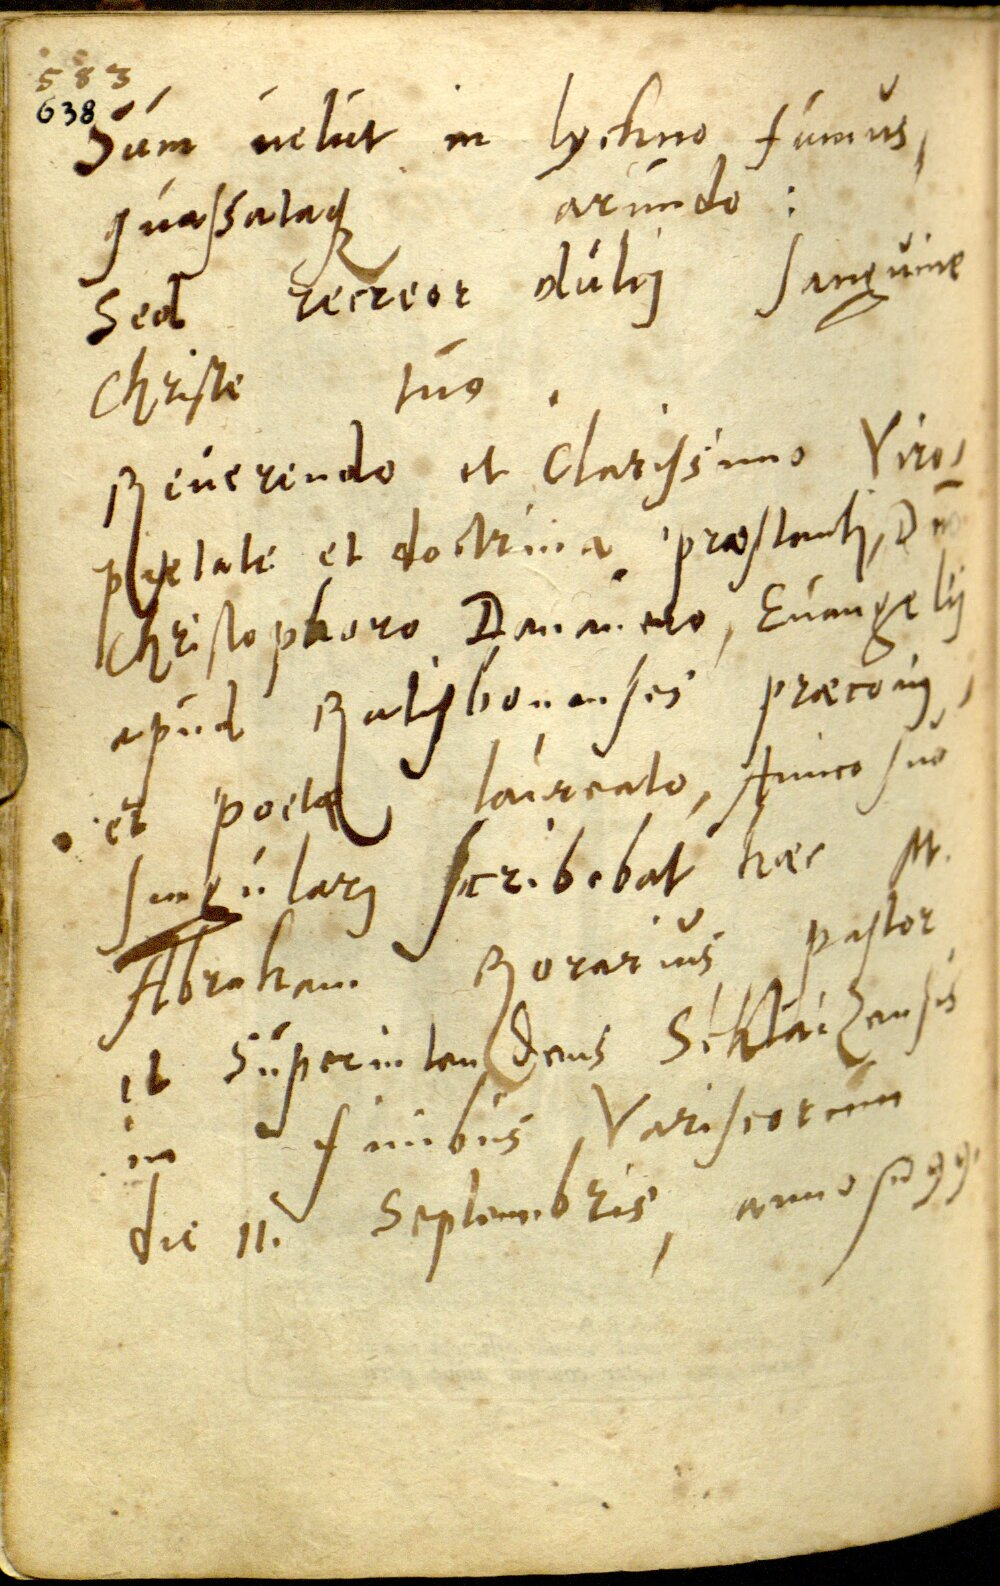 583
638
Sum uelut in lychno fumus,
quassataq₃ arundo:
Sed recreor dulcj sanguine
Christe tuo.
Reuerendo et Clarissimo Viro,
pietate et doctrina præstantj, Dno
Christophoro Danauero, Euangelij
apud Ratisbonenses præconj,
et poetæ laureato, Amico suo
singularj scribebat hæc M.
Abraham Rorarius pastor
et Superintendens
in finibus Variscorum
die 11. Septembris, anno 99.